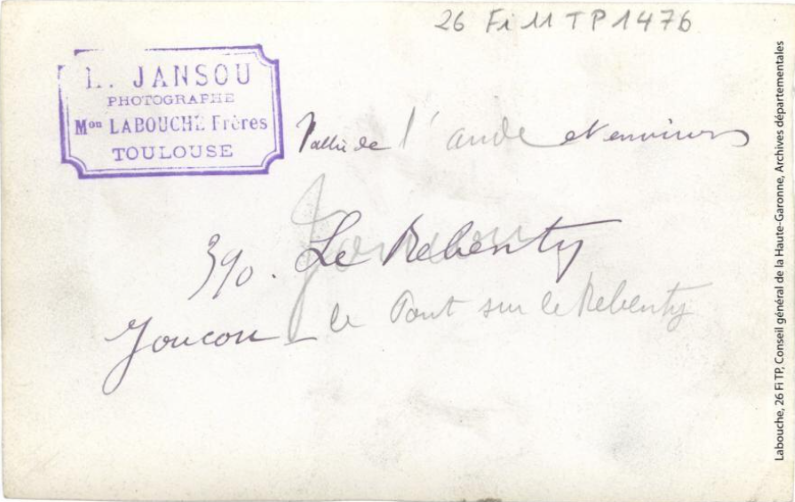 26 Fi 11 TP 1476
L. JANSOU
PHOTOGRAPHE
Mon LABOUCHE Frères
TOULOUSE
Vallée de l'aude et environs
390. Le Rebenty
Joucou
Joucou _ le Pont sur le Rebenty
Labouche, 26 Fi TP, Conseil général de la Haute-Garonne, Archives départementales